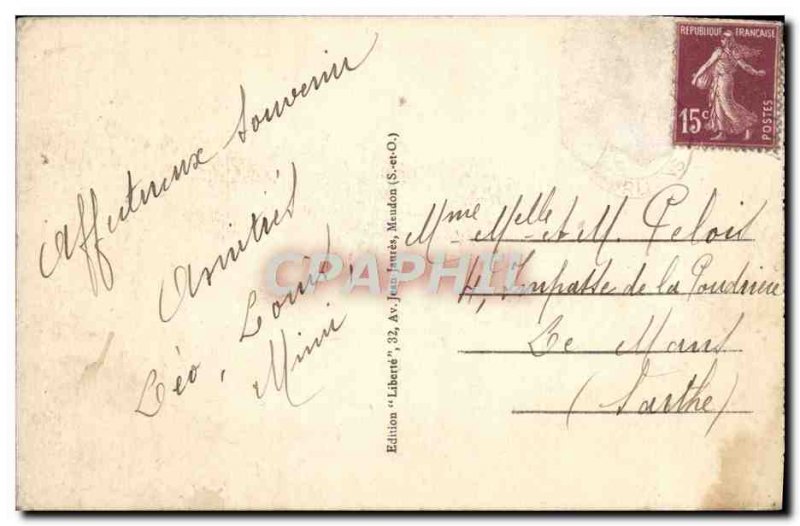 Affectueux Souvenir
Amitiés
Léo, Louis,
Mimi
Edition "Liberté", 32, Av. Jean Jaurès, Meudon (S.-et-O.)
REPUBLIQUE FRANÇAISE
15c
POSTES
Mme Melle et M. Pelois
4, Impasse de la Poudrière
Le Mans
(Sarthe)
CPAPHIL